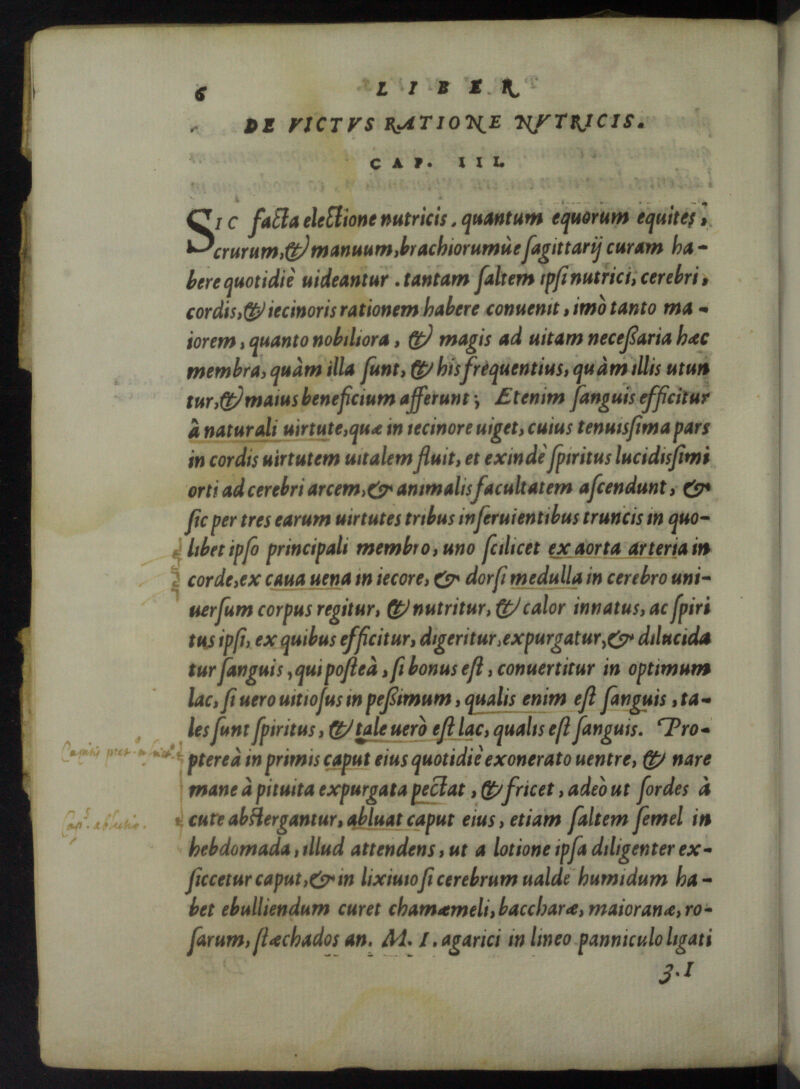 6 LIBER
DE VICTVS RATIONE NVTRICIS.
CAP. III.
SIC facta electione nutricis, quantum equorum equites,
crurum,& manuum,brachiorumùe sagittarij curam ha-
bere quotidiè uideantur. tantam saltem ipsi nutrici, cerebri,
cordis,& iecinoris rationem habere conuenit, imò tanto ma-
iorem, quanto nobiliora, & magis ad uitam necessaria hæc
membra, quàm illa sunt, & his frequentius, quàm illis utun
tur,& maius beneficium afferunt; Etenim sanguis efficitur
à naturali uirtute,quæ in iecinore uiget, cuius tenuissima pars
in cordis uirtutem uitalem fluit, et exinde spiritus lucidissimi
orti ad cerebri arcem,& animalis facultatem ascendunt, &
sic per tres earum uirtutes tribus inseruientibus truncis in quo-
libet ipso principali membro, uno scilicet ex aorta arteria in
corde,ex caua uena in iecore, & dorsi medulla in cerebro uni-
uersum corpus regitur, & nutritur, & calor innatus, ac spiri
tus ipsi, ex quibus efficitur, digeritur,expurgatur,& dilucida
tur sanguis,qui posteà, si bonus est, conuertitur in optimum
lac, si uero uitiosus in pessimum, qualis enim est sanguis, ta-
les sunt spiritus, & tale uerò est lac, qualis est sanguis. Pro-
ptereà in primis caput eius quotidiè exonerato uentre, & nare
mane à pituita expurgata pectat, & fricet, adeò ut sordes à
cute abstergantur, abluat caput eius, etiam saltem semel in
hebdomada, illud attendens, ut a lotione ipsa diligenter ex-
siccetur caput,& in lixiuio si cerebrum ualde humidum ha-
bet ebulliendum curet chamæmeli, baccharæ, maioranæ, ro-
sarum, stæchados an. M. I. agarici in lineo panniculo ligati
3.I